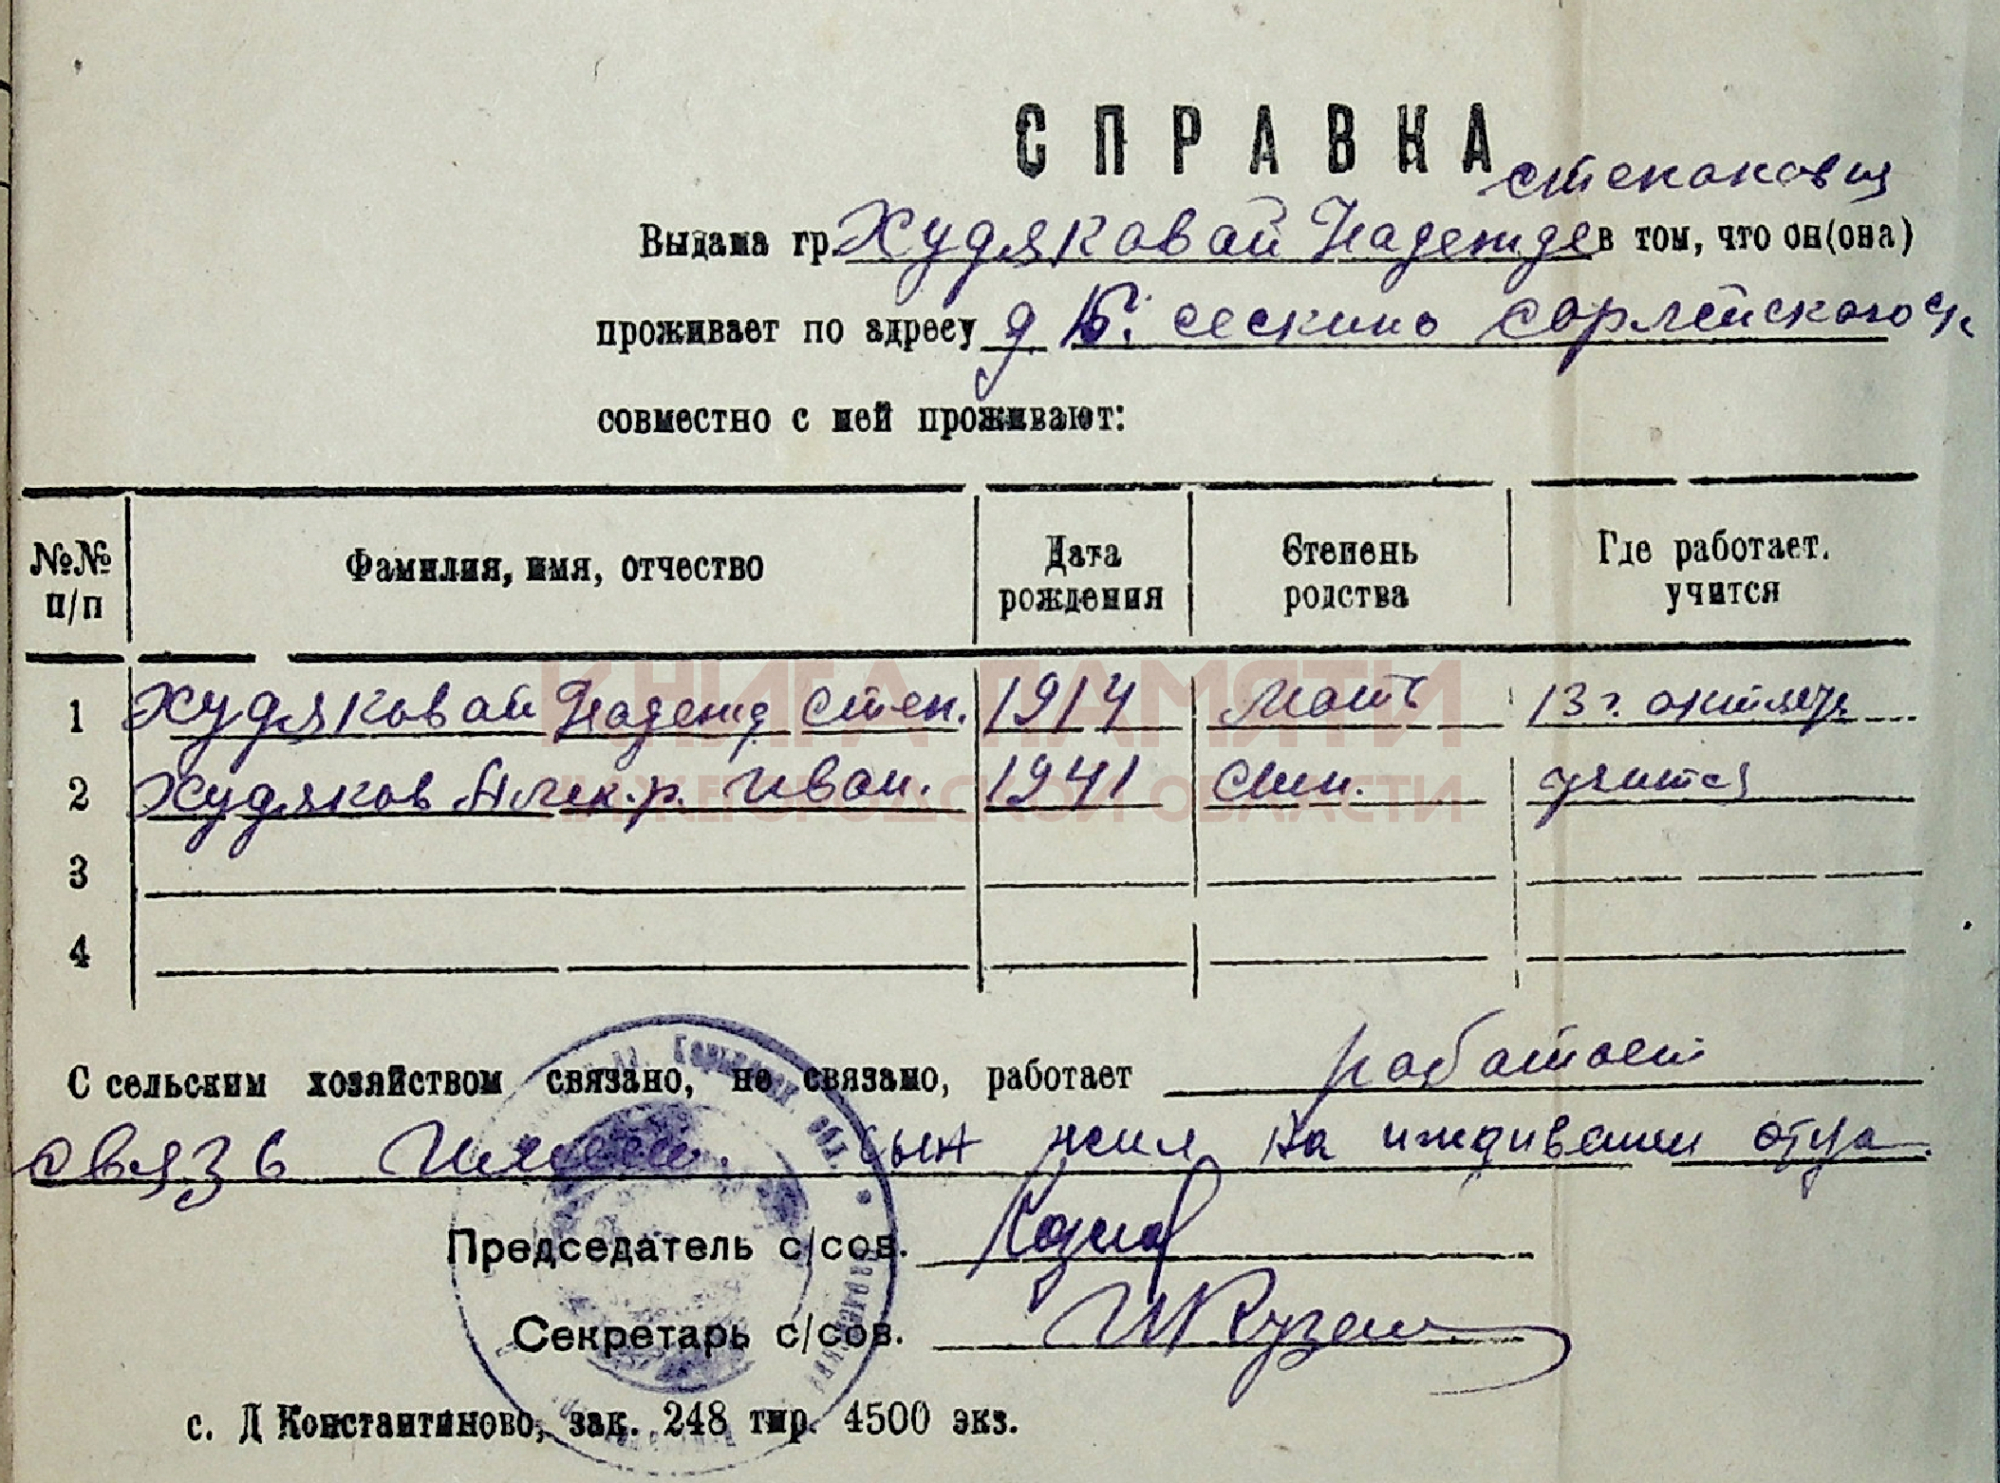 СПРАВКА
степановц
Выдана гр. Худяковай Надежде в том, что он(она)
проживает по адресу д Б. сескино сарлейского
совместно с ней проживают:
№№ п/п Фамилия, имя, отчество Дата рождения Степень родства Где работает. учится
1 Худяковай Надежд Степ. 1914 Мать 13 г. октября
КНИГА ПАМЯТИ
2 Худяков Алек.р. Иван. 1941 Сын. учится
НИЖЕГОРОДСКОЙ ОБЛАСТИ
3
4
С сельским хозяйством связано, не связано, работает работает
связь сын жил на иждивении отца.
Председатель с/сов. Козлов
Секретарь с/сов.
с. Д Константиново, зак. 248 тир. 4500 экз.